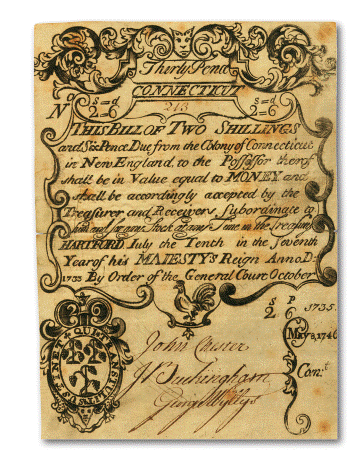 Thirty Pence
CONNECTICUT
s=d
2=6
No
213
s=d
2=6
THIS BILL OF TWO SHILLINGS
and Six Pence Due, from the Colony of Connecticut
in New England, to the Possessor therof
shall be in Value equal to MONEY and
shall be accordingly accepted by the
Treasurer and Receivers subordinate to
him and in any Stock at any Time in the Treasury
HARTFORD July the Tenth in the Seventh
Year of his MAJESTYs Reign Anno D:
1733 By Order of the General Court, October
S P
2 6
1735.
May 8, 1740
Con:t
2 6
SUSTINET QUI TRANSTULIT
John Chester
George Wyllys